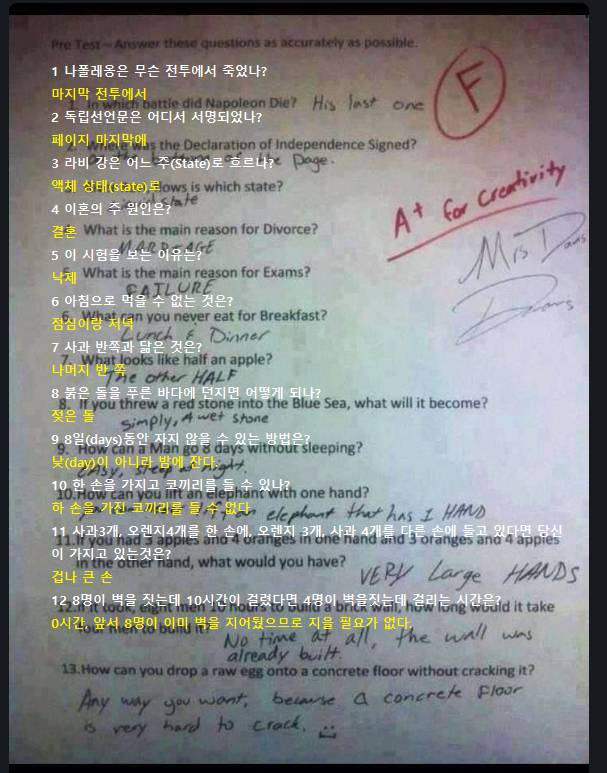 Pre Test – Answer these questions as accurately as possible.
F
1 나폴레옹은 무슨 전투에서 죽었나?
마지막 전투에서
1. In which battle did Napoleon Die? His last one
2 독립선언문은 어디서 서명되었나?
2. Where was the Declaration of Independence Signed?
페이지 마지막에
the Page.
3 라비 강은 어느 주(State)로 흐르나?
액체 상태(state)로
lows is which state?
state
A+ for Creativity
4 이혼의 주 원인은?
결혼
What is the main reason for Divorce?
MARRIAGE
Mrs Davis
5 이 시험을 보는 이유는?
5. What is the main reason for Exams?
낙제
FAILURE
6 아침으로 먹을 수 없는 것은?
6. What can you never eat for Breakfast?
점심이랑 저녁
Lunch & Dinner
7 사과 반쪽과 닮은 것은?
7. What looks like half an apple?
나머지 반 쪽
The other HALF
8 붉은 돌을 푸른 바다에 던지면 어떻게 되나?
8. If you threw a red stone into the Blue Sea, what will it become?
젖은 돌
simply, A wet stone
9 8일(days)동안 자지 않을 수 있는 방법은?
9. How can a Man go 8 days without sleeping?
낮(day)이 아니라 밤에 잔다.
10 한 손을 가지고 코끼리를 들 수 있나?
10.How can you lift an elephant with one hand?
하 손을 가진 코끼리를 들 수 없다
elephant that has 1 HAND
11 사과3개, 오렌지4개를 한 손에, 오렌지 3개, 사과 4개를 다른 손에 들고 있다면 당신
이 가지고 있는것은?
11.If you had 3 apples and 4 oranges in one hand and 3 oranges and 4 apples
in the other hand, what would you have?
겁나 큰 손
VERY Large HANDS
12 8명이 벽을 짓는데 10시간이 걸렸다면 4명이 벽을짓는데 걸리는 시간은?
12.If it took, eight men 10 hours to build a brick wall, how long would it take
four men to build it?
0시간, 앞서 8명이 이미 벽을 지어뒀으므로 지을 필요가 없다.
No time at all, the wall was
already built.
13.How can you drop a raw egg onto a concrete floor without cracking it?
Any way you want, because a concrete floor
is very hard to crack.